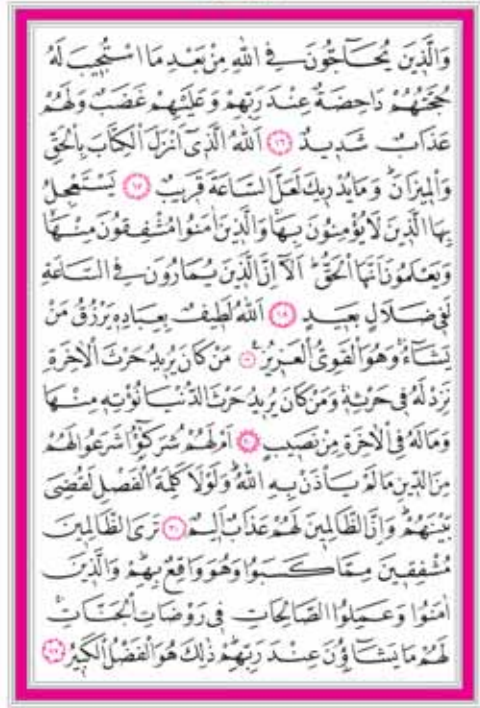 وَالَّذِينَ يُحَاجُّونَ فِي اللّٰهِ مِنْ بَعْدِ مَا اسْتُجِيبَ لَهُ
حُجَّتُهُمْ دَاحِضَةٌ عِنْدَ رَبِّهِمْ وَعَلَيْهِمْ غَضَبٌ وَلَهُمْ
عَذَابٌ شَدِيدٌ ﴿١٦﴾ اَللّٰهُ الَّذِٓى اَنْزَلَ الْكِتَابَ بِالْحَقِّ
وَالْمِيزَانَ وَمَا يُدْرِيكَ لَعَلَّ السَّاعَةَ قَرِيبٌ ﴿١٧﴾ يَسْتَعْجِلُ
بِهَا الَّذِينَ لَا يُؤْمِنُونَ بِهَا وَالَّذِينَ اٰمَنُوا مُشْفِقُونَ مِنْهَا
وَيَعْلَمُونَ اَنَّهَا الْحَقُّ اَلَٓا اِنَّ الَّذِينَ يُمَارُونَ فِي السَّاعَةِ
لَفِي ضَلَالٍ بَعِيدٍ ﴿١٨﴾ اَللّٰهُ لَطِيفٌ بِعِبَادِهِ يَرْزُقُ مَنْ
يَشَٓاءُ وَهُوَ الْقَوِىُّ الْعَزِيزُ ﴿١٩﴾ مَنْ كَانَ يُرِيدُ حَرْثَ الْاٰخِرَةِ
نَزِدْ لَهُ فِي حَرْثِهِ وَمَنْ كَانَ يُرِيدُ حَرْثَ الدُّنْيَا نُؤْتِهِ مِنْهَا
وَمَا لَهُ فِي الْاٰخِرَةِ مِنْ نَصِيبٍ ﴿٢٠﴾ اَمْ لَهُمْ شُرَكٰٓؤُا شَرَعُوا لَهُمْ
مِنَ الدِّينِ مَا لَمْ يَأْذَنْ بِهِ اللّٰهُ وَلَوْلَا كَلِمَةُ الْفَصْلِ لَقُضِىَ
بَيْنَهُمْ وَاِنَّ الظَّالِمِينَ لَهُمْ عَذَابٌ اَلِيمٌ ﴿٢١﴾ تَرَى الظَّالِمِينَ
مُشْفِقِينَ مِمَّا كَسَبُوا وَهُوَ وَاقِعٌ بِهِمْ وَالَّذِينَ
اٰمَنُوا وَعَمِلُوا الصَّالِحَاتِ فِي رَوْضَاتِ الْجَنَّاتِ
لَهُمْ مَا يَشَٓاؤُنَ عِنْدَ رَبِّهِمْ ذٰلِكَ هُوَ الْفَضْلُ الْكَبِيرُ ﴿٢٢﴾